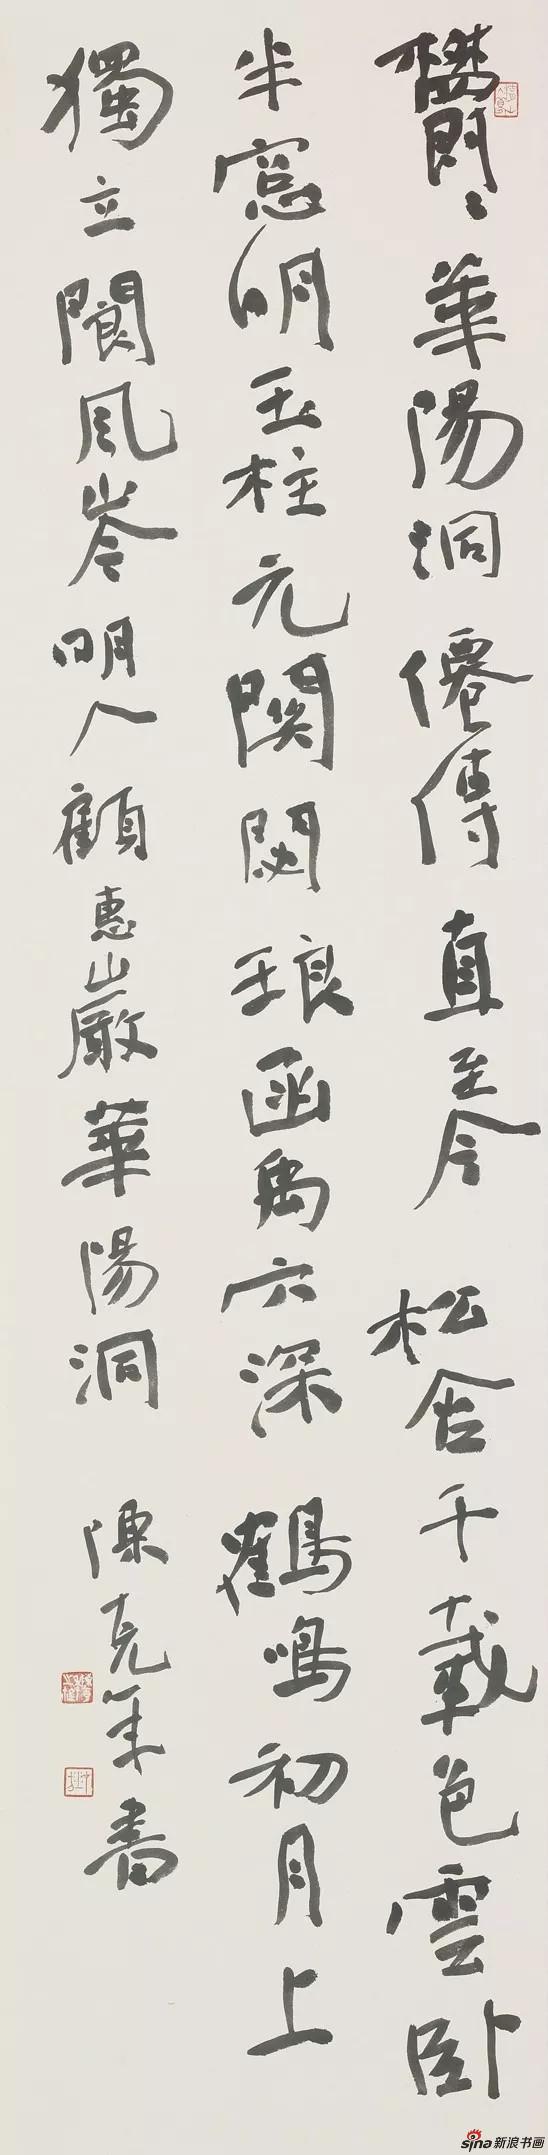 欝〻華陽洞僊傳直至今松含千載色雲卧
半窻明玉柱元関閟琅函禹穴深鶴鳴初月上
獨立閬風岑明人顧惠巖華陽洞陳克年書
sina新浪书画